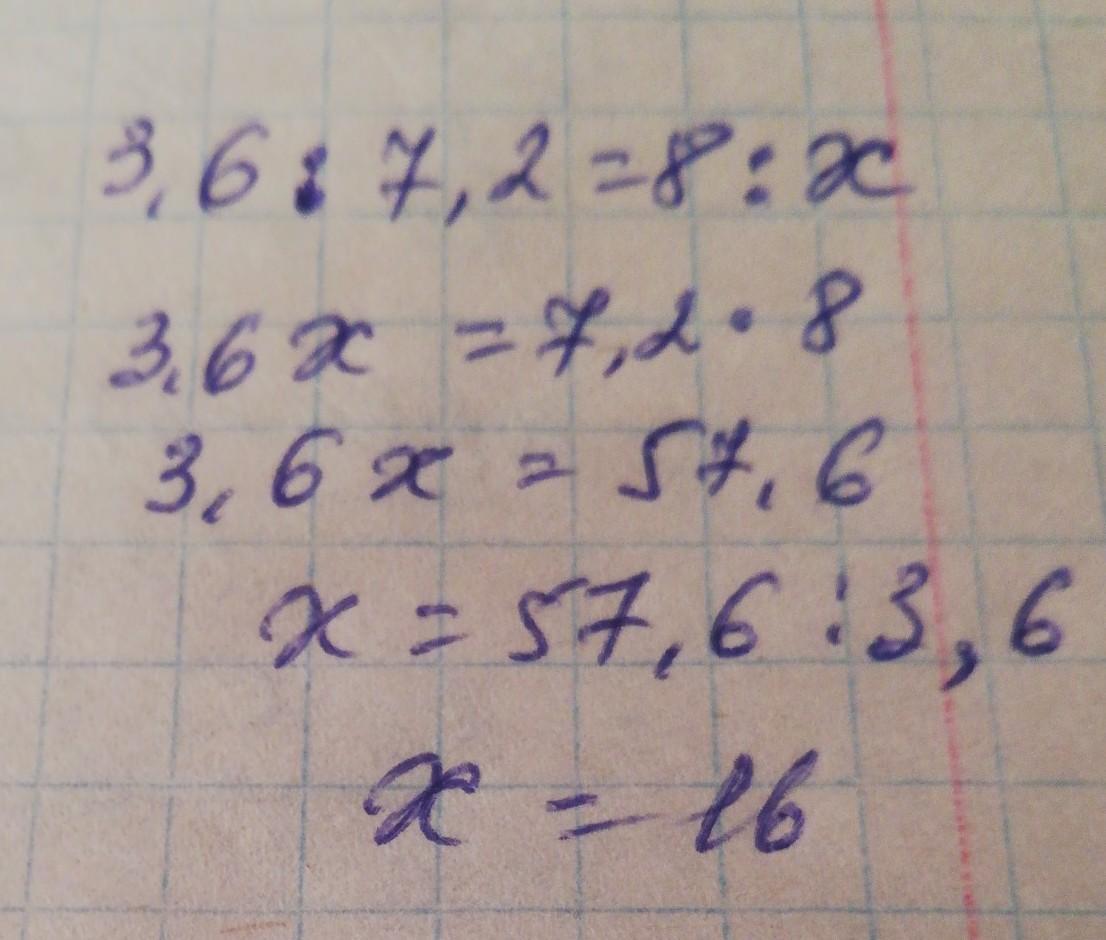 3,6 : 7,2 = 8 : x
3,6 x = 7,2 · 8
3,6 x = 57,6
x = 57,6 : 3,6
x = 16